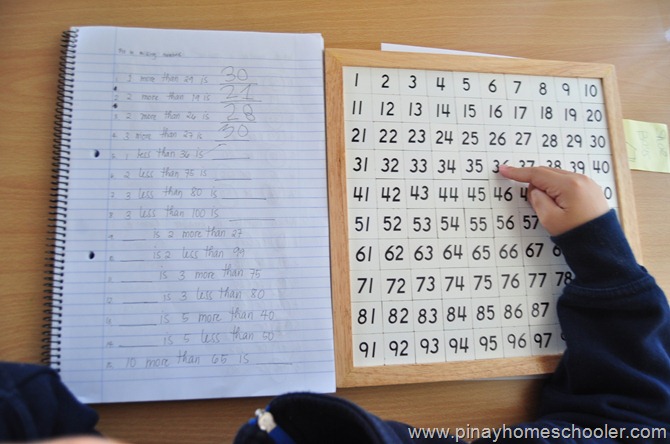 Fill in missing numbers
1. 1 more than 29 is 30
2. 2 more than 19 is 21
3. 2 more than 26 is 28
4. 3 more than 27 is 30
5. 1 less than 36 is
6. 2 less than 75 is
7. 3 less than 80 is
8. 3 less than 100 is
9. is 2 more than 27
10. is 2 less than 99
11. is 3 more than 75
12. is 3 less than 80
13. is 5 more than 40
14. is 5 less than 50
15. 10 more than 65 is
1 2 3 4 5 6 7 8 9 10
11 12 13 14 15 16 17 18 19 20
21 22 23 24 25 26 27 28 29 30
31 32 33 34 35 36 37 38 39 40
41 42 43 44 45 46
51 52 53 54 55 56 57
61 62 63 64 65 66 67
71 72 73 74 75 76 77 78
81 82 83 84 85 86 87
91 92 93 94 95 96 97
www.pinayhomeschooler.com